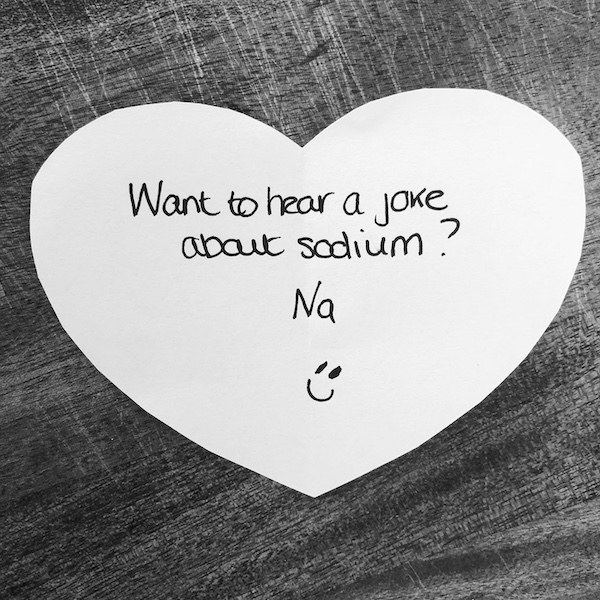 Want to hear a joke
about sodium?
Na